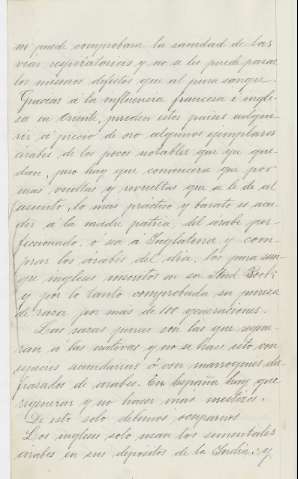 se puede comprobar la sanidad de las
vias respiratorias y no a los puede pasar
los mismos defectos que al pura sangre.
Gracias á la influencia francesa é ingle-
sa en Oriente, pueden estos paises adqui-
rir á precio de oro algunos ejemplares
árabes de los pocos notables que que que-
dan, pero hay que convencerse que por
mas vueltas y revueltas que se le dé al
asunto, lo mas práctico y barato es acu-
dir á la madre patria, del árabe per-
feccionado, o sea á Inglaterra y com-
prar los árabes del dia, los pura san-
gre ingleses inscritos en su Stud Book
y por lo tanto comprobada su pureza
de raza por más de 100 generaciones.
Las razas puras son las que mejo-
ran á las nativas y no se hace esto con
especies secundarias ó con marroquies dis-
frazados de árabes. En España hay que
regenerar y no hacer mas mestizos.
De esto solo debemos ocuparnos
Los ingleses solo usan los sementales
árabes en sus depósitos de la India; y